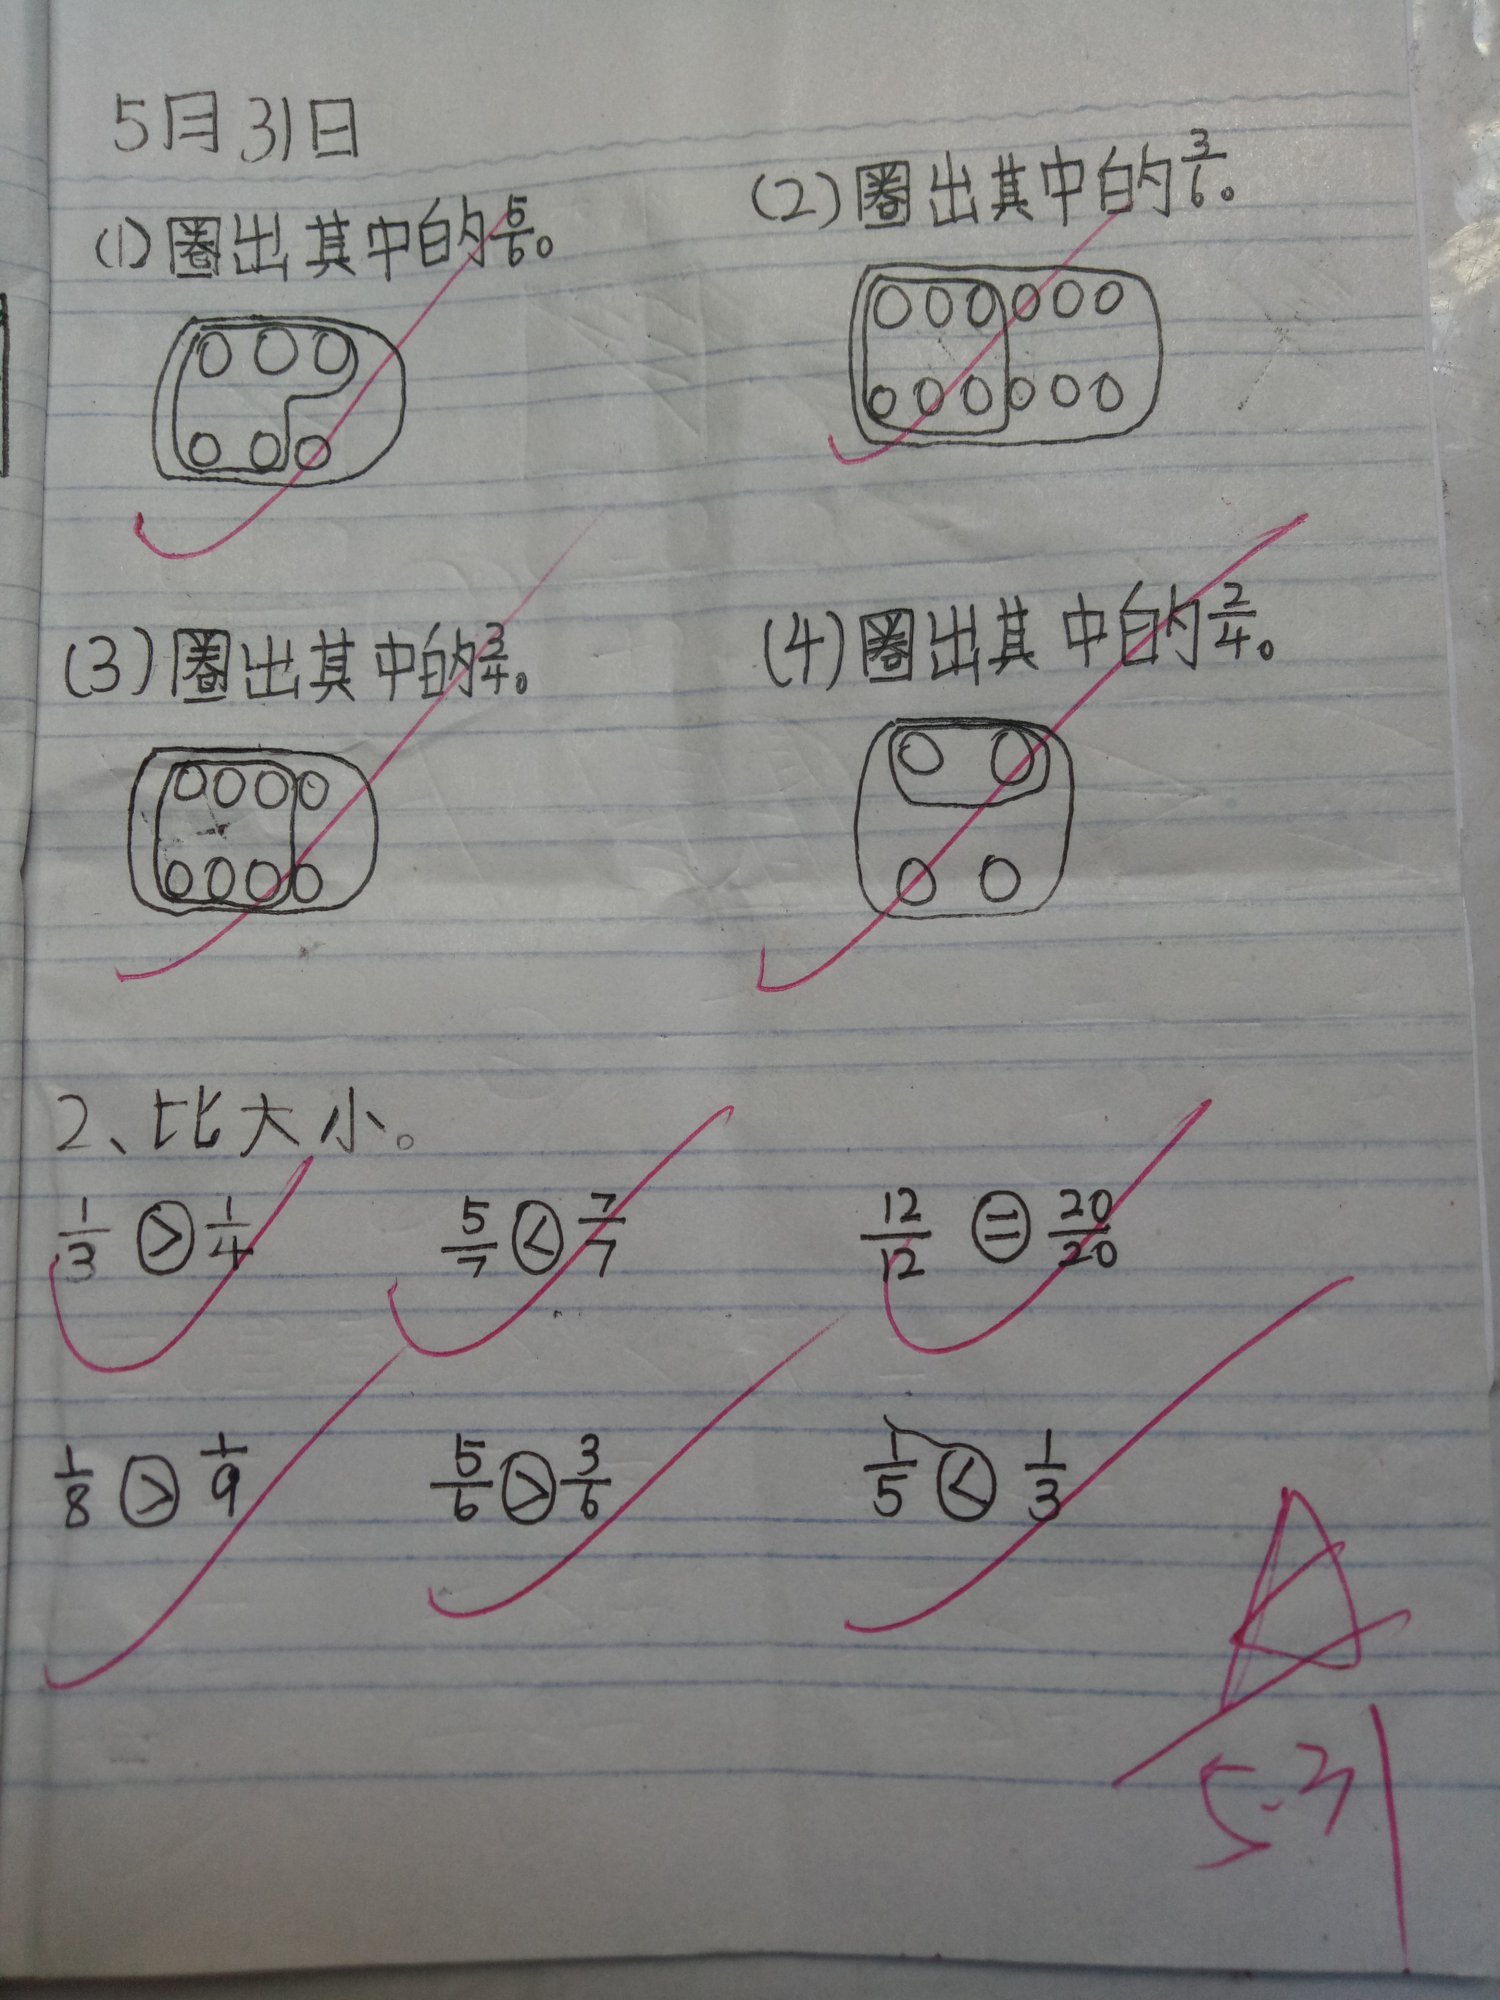 5月31日
(1)圈出其中的5/6。
(2)圈出其中的3/6。
(3)圈出其中的3/4。
(4)圈出其中的2/4。
2、比大小。
1/3 > 1/4 5/7 < 7/7 12/12 = 20/20
1/8 > 1/9 5/6 > 3/6 1/5 < 1/3
A
5.31